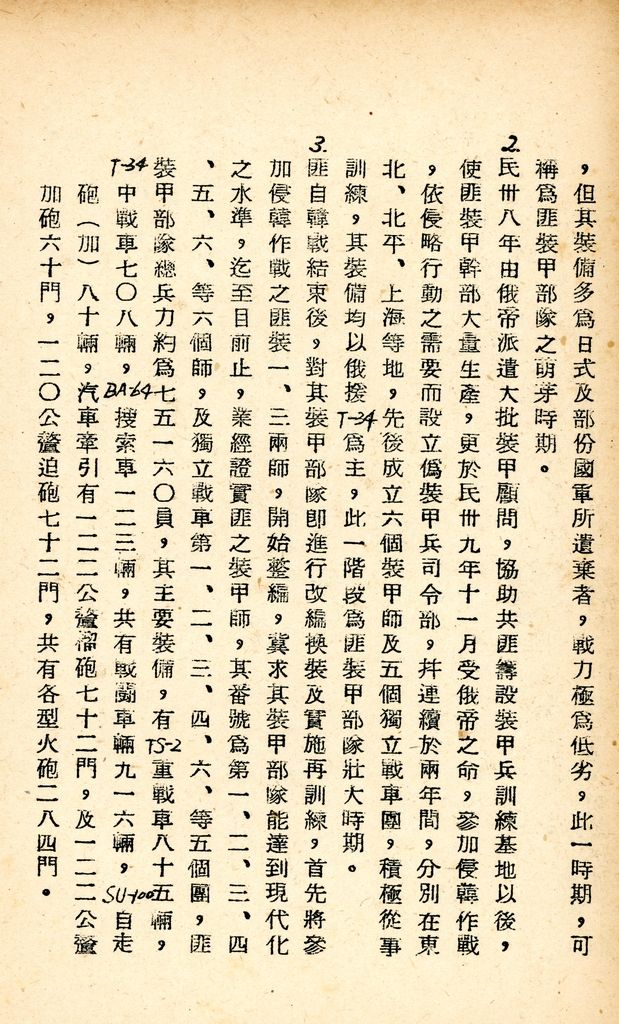 ，但其裝備多爲日式及部份國軍所遺棄者，戰力極爲低劣，此一時期，可
稱爲匪裝甲部隊之萌芽時期。
2.民卅八年由俄帝派遣大批裝甲顧問，協助共匪籌設裝甲兵訓練基地以後，
使匪裝甲幹部大量生產，更於民卅九年十一月受俄帝之命，參加侵韓作戰
，依侵略行動之需要而設立僞裝甲兵司令部，幷連續於兩年間，分別在東
北、北平、上海等地，先後成立六個裝甲師及五個獨立戰車團，積極從事
訓練，其裝備均以俄援T-34爲主，此一階段爲匪裝甲部隊壯大時期。
3.匪自韓戰結束後，對其裝甲部隊卽進行改編換裝及實施再訓練，首先將參
加侵韓作戰之匪裝一、三兩師，開始整編，冀求其裝甲部隊能達到現代化
之水準，迄至目前止，業經證實匪之裝甲師，其番號爲第一、二、三、四
、五、六、等六個師，及獨立戰車第一、二、三、四、六、等五個團，匪
裝甲部隊總兵力約爲七五一六〇員，其主要裝備，有TS-2重戰車八十五輛，
T-34中戰車七〇八輛，BA-64搜索車一二三輛，共有戰鬪車輛九一六輛，SU-100自走
砲（加）八十輛，汽車牽引有一二二公釐榴砲七十二門，及一二二公釐
加砲六十門，一二〇公釐迫砲七十二門，共有各型火砲二八四門。